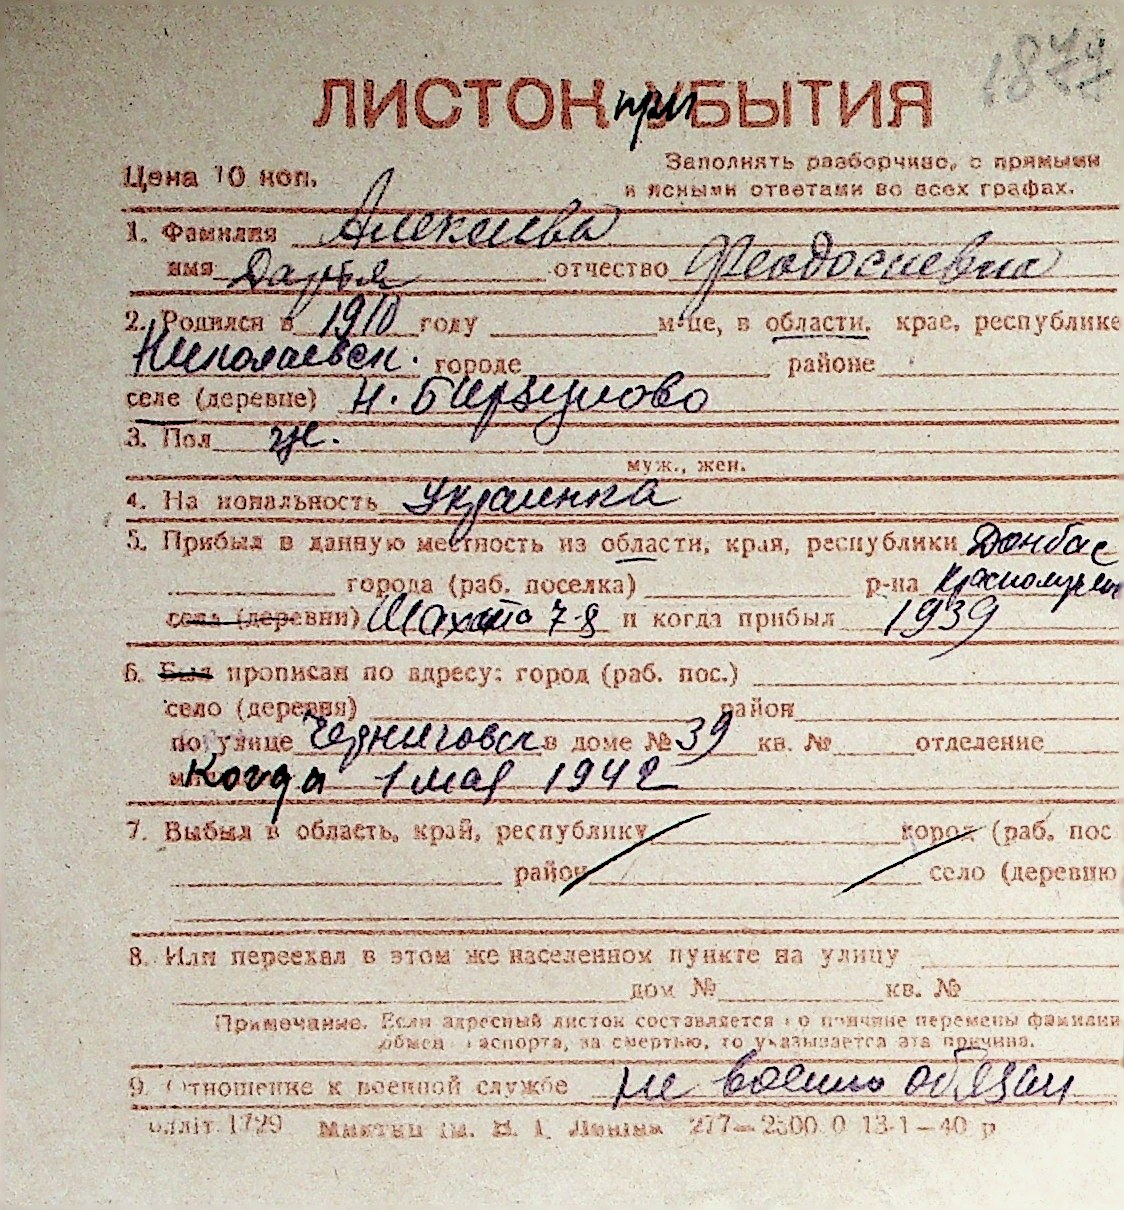 ЛИСТОК при УБЫТИЯ
Цена 10 коп.
Заполнять разборчиво, с прямыми
и ясными ответами во всех графах.
1. Фамилия Алексеева
имя Дарья отчество Феодосиевна
2. Родился в 1910 году м-це, в области, крае, республике
Николаевск. городе районе
селе (деревне) Н. Бирзулово
3. Пол ж.
муж., жен.
4. На иональность Украинка
5. Прибыл в данную местность из области, края, республики Донбас
города (раб. поселка) р-на
села (деревни) Шахта 7-8 и когда прибыл 1939
6. Был прописан по адресу: город (раб. пос.)
село (деревня) район
по улице Черниговск в доме № 39 кв. № отделение
Когда 1 мая 1942
7. Выбыл в область, край, республику город (раб. пос
район село (деревню
8. Или переехал в этом же населенном пункте на улицу
дом № кв. №
Примечание. Если адресный листок составляется о причине перемены фамилии
обмен паспорта, за смертью, то указывается эта причина.
9. Отношение к военной службе не военно обязан
1729 277—2500 0 13-1—40 р